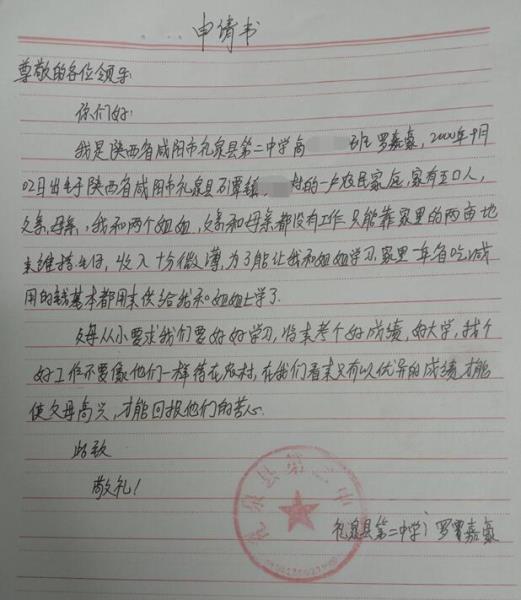 申请书
尊敬的各位领导:
你们好!
我是陕西省咸阳市礼泉县第二中学高 班罗嘉豪, 2000年9月
02日出生于陕西省咸阳市礼泉县石潭镇 村的一户农民家庭,家有五口人,
父亲,母亲,我和两个姐姐,父亲和母亲都没有工作只能靠家里的两亩地
来维持生活,收入十分微薄,为了能让我和姐姐学习,家里一年省吃减
用的钱基本都用来供给我和姐姐上学了.
父母从小要求我们要好好学习,将来考个好成绩,好大学,找个
好工作不要像他们一样待在农村,在我们看来只有以优异的成绩才能
使父母高兴,才能回报他们的苦心.
此致
敬礼!
礼泉县第二中
礼泉县第二中学: 罗嘉豪